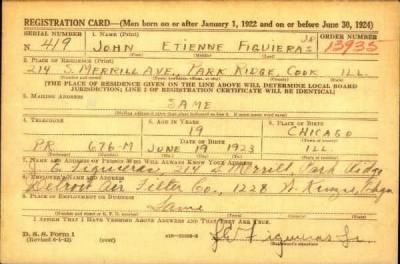 REGISTRATION CARD—(Men born on or after January 1, 1922 and on or before June 30, 1924)
SERIAL NUMBER 1. NAME (Print) ORDER NUMBER
N 419 JOHN ETIENNE FIGUIERAS JR 13935
2. PLACE OF RESIDENCE (Print)
214 S. MERRILL AVE., PARK RIDGE, COOK ILL.
[THE PLACE OF RESIDENCE GIVEN ON THE LINE ABOVE WILL DETERMINE LOCAL BOARD
JURISDICTION; LINE 2 OF REGISTRATION CERTIFICATE WILL BE IDENTICAL]
3. MAILING ADDRESS
SAME
4. TELEPHONE 5. AGE IN YEARS 6. PLACE OF BIRTH
19 CHICAGO
DATE OF BIRTH
PR 676-M JUNE 19 1923 ILL.
7. NAME AND ADDRESS OF PERSON WHO WILL ALWAYS KNOW YOUR ADDRESS
Figuieras, 214 S Merrill, Park Ridge
8. EMPLOYER'S NAME AND ADDRESS
Detroit Air Filter Co., 1228 W. Kinzie, Chgo
9. PLACE OF EMPLOYMENT OR BUSINESS
Same
I AFFIRM THAT I HAVE VERIFIED ABOVE ANSWERS AND THAT THEY ARE TRUE.
D. S. S. Form 1
J E Figuieras Jr.